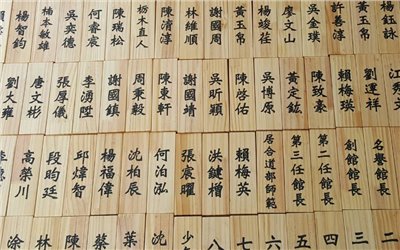 楊鈺詠
許善淳
黃玉帛
吳金璞
廖文山
楊竣
黃玉帛
林維順
陳淯淳
栃木直人
陳瑞松
何睿宸
吳奕德
楠本敏雄
楊智鈞
江秀文
劉運祥
賴梅瑛
陳致豪
黃定鋐
陳啓佑
吳博原
吳昕穎
謝國靖
陳東軒
周秉毅
謝國鎮
李湧陞
張厚儀
唐文彬
劉大維
名譽館長
創館館長
第二任館長
第三任館長
居合道部師範
賴梅英
洪健增
張宸曜
何泊泓
沈柏辰
楊福偉
邱煒智
段昀廷
高榮川
二
三
四
五
六
七
八
少
沈
葉
蔡
陳
林
涂